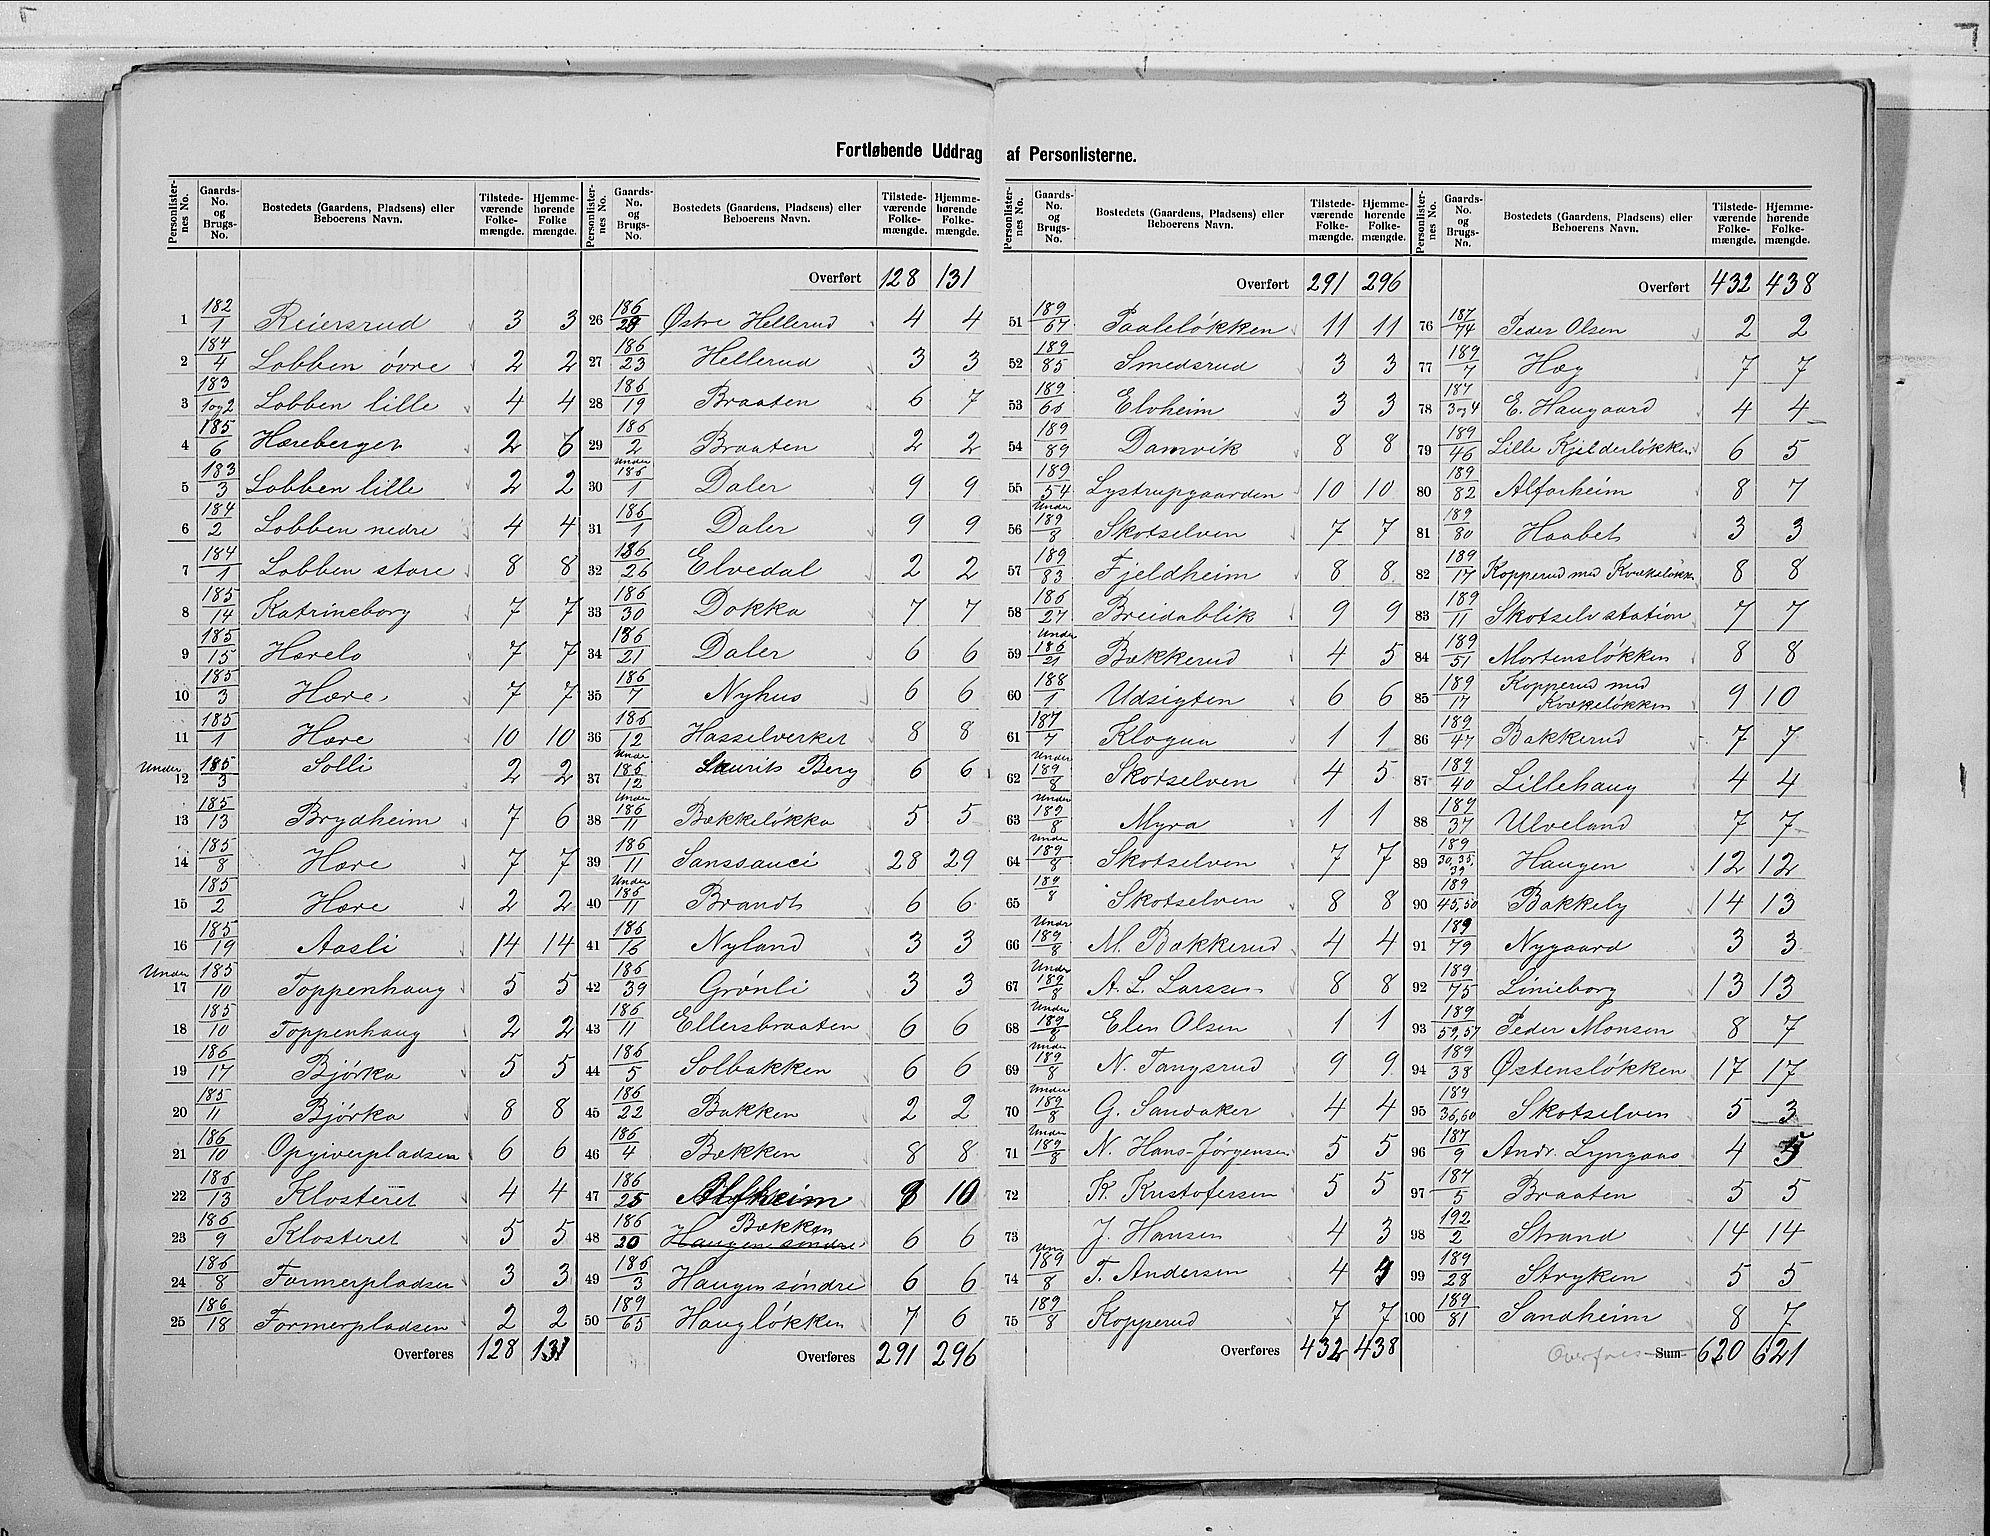 Fortløbende Uddrag af Personlisterne.
Personlister-nes No. | Gaards-No. og Brugs-No. | Bostedets (Gaardens, Pladsens) eller Beboerens Navn. | Tilstede-værende Folke-mængde. | Hjemme-hørende Folke mængde.
1 182/1 Reiersrud 3 3
2 184/4 Lobben øvre 2 2
3 183/1 og 2 Lobben lille 4 4
4 185/6 Hæreberget 2 6
5 183/3 Lobben lille 2 2
6 184/2 Lobben nedre 4 4
7 184/1 Lobben store 8 8
8 185/14 Katrineborg 7 7
9 185/15 Hærelo 7 7
10 185/3 Hære 7 7
11 185/1 Hære 10 10
12 Under 185/3 Solli 2 2
13 185/13 Brydheim 7 6
14 185/8 Hære 7 7
15 185/2 Hære 2 2
16 185/19 Aasli 14 14
17 Under 185/10 Toppenhaug 5 5
18 185/10 Toppenhaug 2 2
19 186/17 Bjørka 5 5
20 185/11 Bjørka 8 8
21 186/10 Opgiverpladsen 6 6
22 186/13 Klosteret 4 4
23 186/9 Klosteret 5 5
24 186/8 Formerpladsen 3 3
25 186/18 Formerpladsen 2 2
Overføres 128 131
Personlister-nes No. | Gaards-No. og Brugs-No. | Bostedets (Gaardens, Pladsens) eller Beboerens Navn. | Tilstede-værende Folke-mængde. | Hjemme-hørende Folke-mængde.
Overført 128 131
26 186/29 Østre Hellerud 4 4
27 186/23 Hellerud 3 3
28 186/19 Braaten 6 7
29 186/2 Braaten 2 2
30 Under 186/1 Daler 9 9
31 186/1 Daler 9 9
32 186/26 Elvedal 2 2
33 186/30 Dokka 7 7
34 186/21 Daler 6 6
35 186/7 Nyhus 6 6
36 186/12 Hasselverket 8 8
37 Under 186/12 Laurits Berg 6 6
38 Under 186/11 Bækkeløkka 5 5
39 186/11 Sanssouci 28 29
40 Under 186/11 Brandt 6 6
41 186/16 Nyland 3 3
42 186/39 Grønli 3 3
43 186/11 Ellersbraaten 6 6
44 186/5 Solbakken 6 6
45 186/22 Bakken 2 2
46 186/4 Bækken 8 8
47 186/25 Alfheim 8 10
48 186/20 Bækken Haugen søndre 6 6
49 186/3 Haugen søndre 6 6
50 189/65 Haugløkken 7 6
Overføres 291 296
Personlister-nes No. | Gaards-No. og Brugs-No. | Bostedets (Gaardens, Pladsens) eller Beboerens Navn. | Tilstede-værende Folke-mængde. | Hjemme-hørende Folke-mængde.
Overført 291 296
51 189/67 Paaleløkken 11 11
52 189/85 Smedsrud 3 3
53 189/66 Elvheim 3 3
54 189/89 Damvik 8 8
55 189/54 Lystrupgaarden 10 10
56 Under 189/8 Skotselven 7 7
57 189/83 Fjeldheim 8 8
58 186/27 Breidablik 9 9
59 Under 186/21 Bækkerud 4 5
60 188/1 Udsigten 6 6
61 187/7 Klogua 1 1
62 Under 189/8 Skotselven 4 5
63 Under 189/8 Myra 1 1
64 Under 189/8 Skotselven 7 7
65 189/8 Skotselven 8 8
66 Under 189/8 M. Bakkerud 4 4
67 Under 189/8 A. L. Larssen 8 8
68 Under 189/8 Elen Olsen 1 1
69 Under 189/8 N. Tangsrud 9 9
70 Under 189/8 G. Sandaker 4 4
71 Under 189/8 N. Hans Jørgensen 5 5
72 K. Kristofersen 5 5
73 J. Hansen 4 3
74 Un 189/8 T. Andersen 4 4
75 189/8 Kopperud 7 7
Overføres 432 438
Personlister-nes No. | Gaards-No. og Brugs-No. | Bostedets (Gaardens, Pladsens) eller Beboerens Navn. | Tilstede-værende Folke-mængde. | Hjemme-hørende Folke-mængde.
Overført 432 438
76 187/74 Peder Olsen 2 2
77 189/7 Hæg 7 7
78 187/3 og 4 E. Haugaard 4 4
79 189/46 Lille Kjelderløkken 6 5
80 189/82 Alfarheim 8 7
81 189/80 Haabet 3 3
82 189/17 Kopperud med Kvækeløkken 8 8
83 189/11 Skotselv station 7 7
84 189/51 Mortensløkken 8 8
85 189/17 Kopperud med Kvækeløkken 9 10
86 189/47 Bakkerud 7 7
87 189/40 Lillehaug 4 4
88 189/37 Ulveland 7 7
89 189/30, 35, 39 Haugen 12 12
90 189/45, 50 Bakkeby 14 13
91 189/79 Nygaard 3 3
92 189/75 Linieborg 13 13
93 189/59, 57 Peder Monsen 8 7
94 189/38 Østensløkken 17 17
95 189/36, 60 Skotselven 5 3
96 187/9 Andr. Lyngaas 4 5
97 187/5 Braaten 5 5
98 192/2 Strand 14 14
99 189/28 Stryken 5 5
100 189/81 Sandheim 8 7
Overføres Sum 620 621